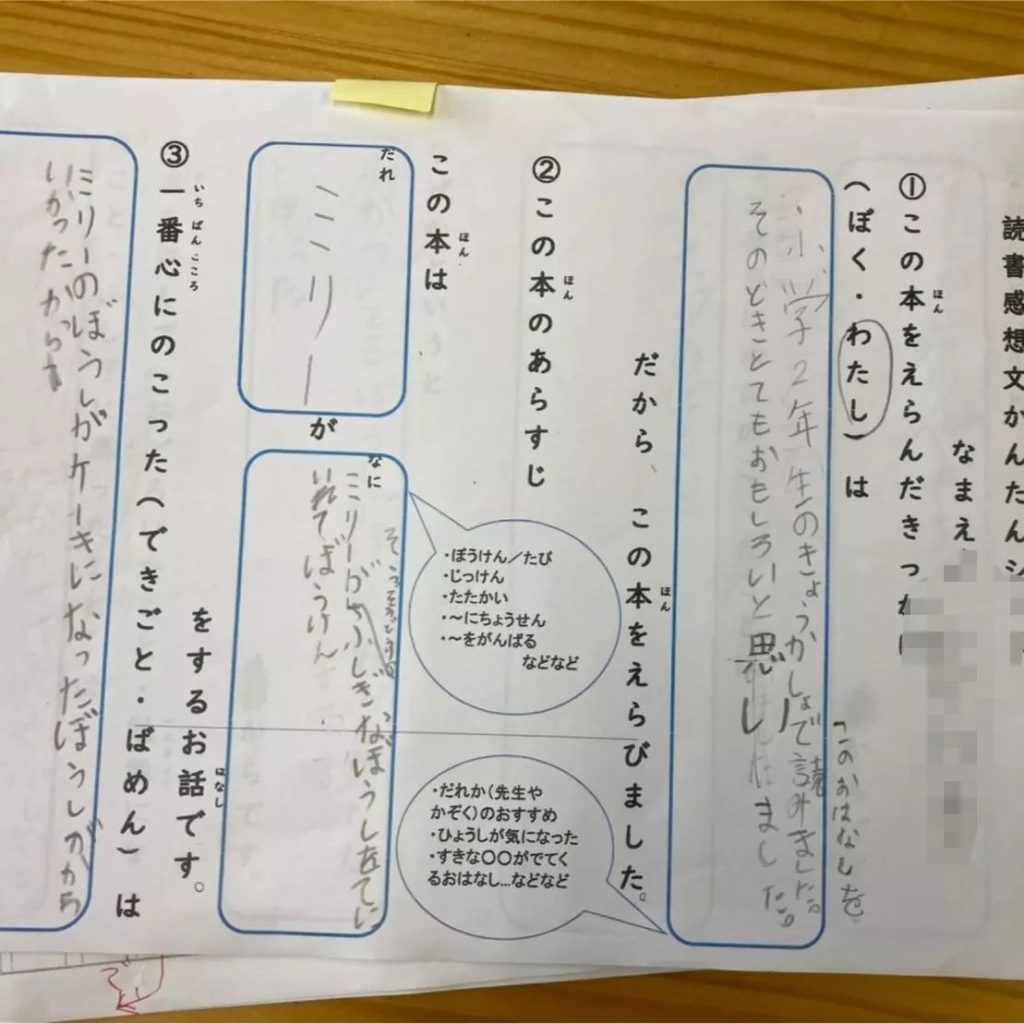 読書感想文かんたんシ
なまえ
①この本をえらんだきっ
ほん
(ぼく・わたし)は
「このおはなしを
小学2年生のきょうかしょで読みました。
そのときとてもおもしろいと思い ました。
だから、この本をえらびました。
ほん
・だれか(先生や
かぞく)のおすすめ
・ひょうしが気になった
・すきな〇〇がでてく
るおはなし…などなど
②この本のあらすじ
ほん
・ぼうけん/たび
・じっけん
・たたかい
・～にちょうせん
・～をがんばる
などなど
この本は
ほん
だれ
ミリー
が
なに
ミリーが ふしぎなぼうしをてに
いれてぼうけん
をするお話です。
はなし
③一番心にのこった(できごと・ばめん)は
いちばんこころ
ミリーのぼうしがケーキになったぼうしがから